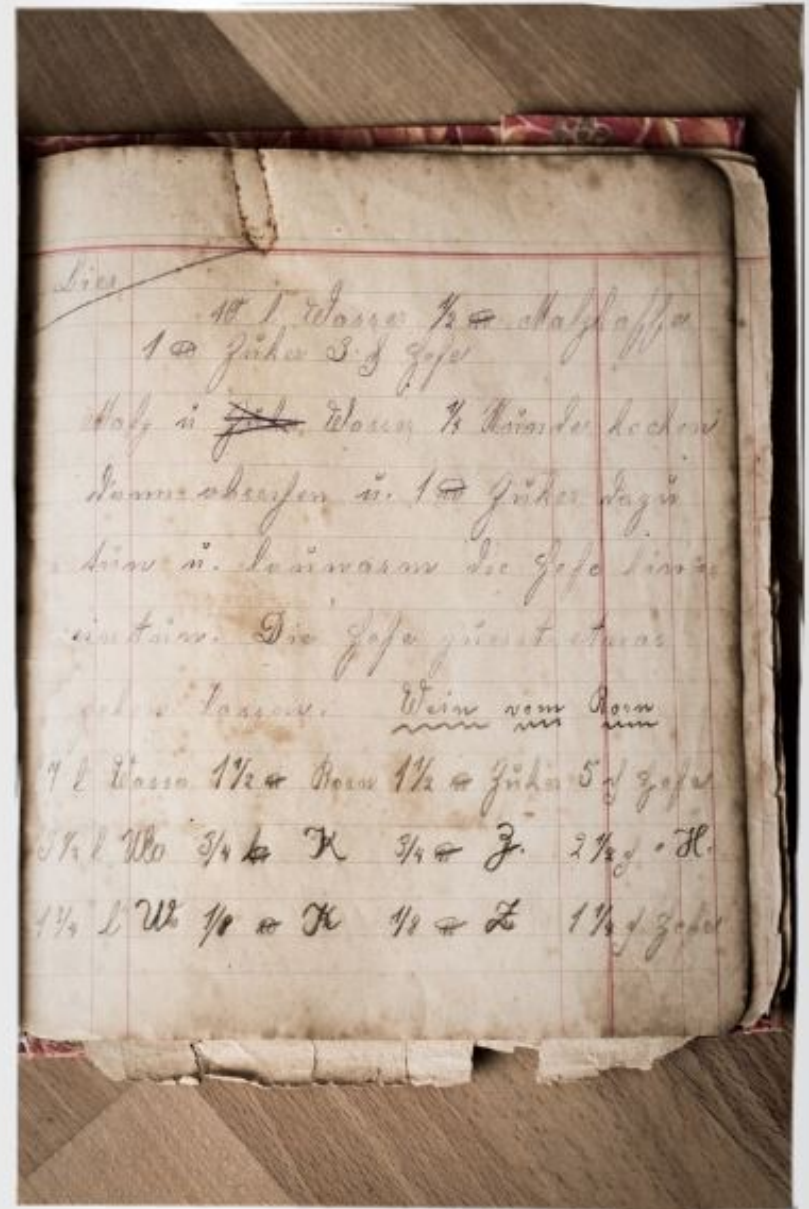 Bier.
10 l Wasser ½ ℔ Malzkaffe
1 ℔ Zuker 3 ₰ Hefe
Malz u Wasser ½ Stunde kochen
dann abseihen u. 1 ℔ Zuker dazu
tun u. lauwarm die Hefe hin
eintun. Die Hefe zuerst etwas
gehen lassen. Wein vom Korn
7 l Wasser 1½ ℔ Korn 1½ ℔ Zuker 5 ₰ Hefe
3½ l Wa ¾ ℔ K ¾ ℔ Z. 2½ ₰ • H.
1¾ l W ⅛ ℔ K ⅛ ℔ Z 1¼ ₰ Hefe